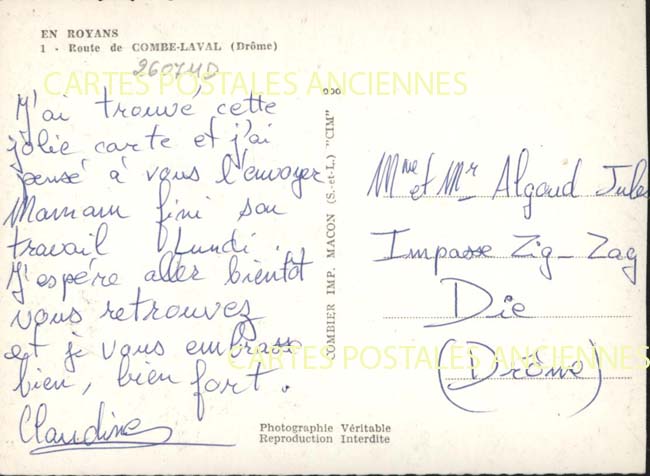 EN ROYANS
1 - Route de COMBE-LAVAL (Drôme)
26074D
CARTES POSTALES ANCIENNES
J'ai trouvé cette
jolie carte et j'ai
pensé à vous l'envoyer
Mamam fini son
travail Lundi.
J'espére aller bientôt
vous retrouvez
et je vous embrasse
bien, bien fort.
Claudine
COMBIER IMP. MACON (S.-et-L.) "CIM"
Mme et Mr Algoud Jules
Impasse Zig-Zag
Die
(Drôme)
CARTES POSTALES ANCIENNES
Photographie Véritable
Reproduction Interdite